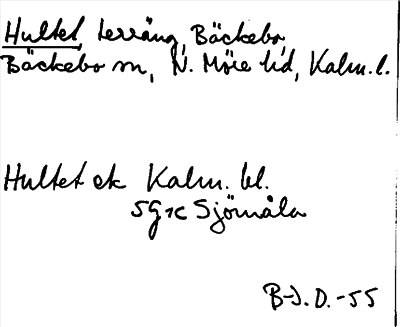 Hultet, terräng, Bäckebo
Bäckebo sn, N. Möre hd, Kalm. l.
Hultet ek Kalm. bl.
5G 1c Sjömåla
B-J. O. -55